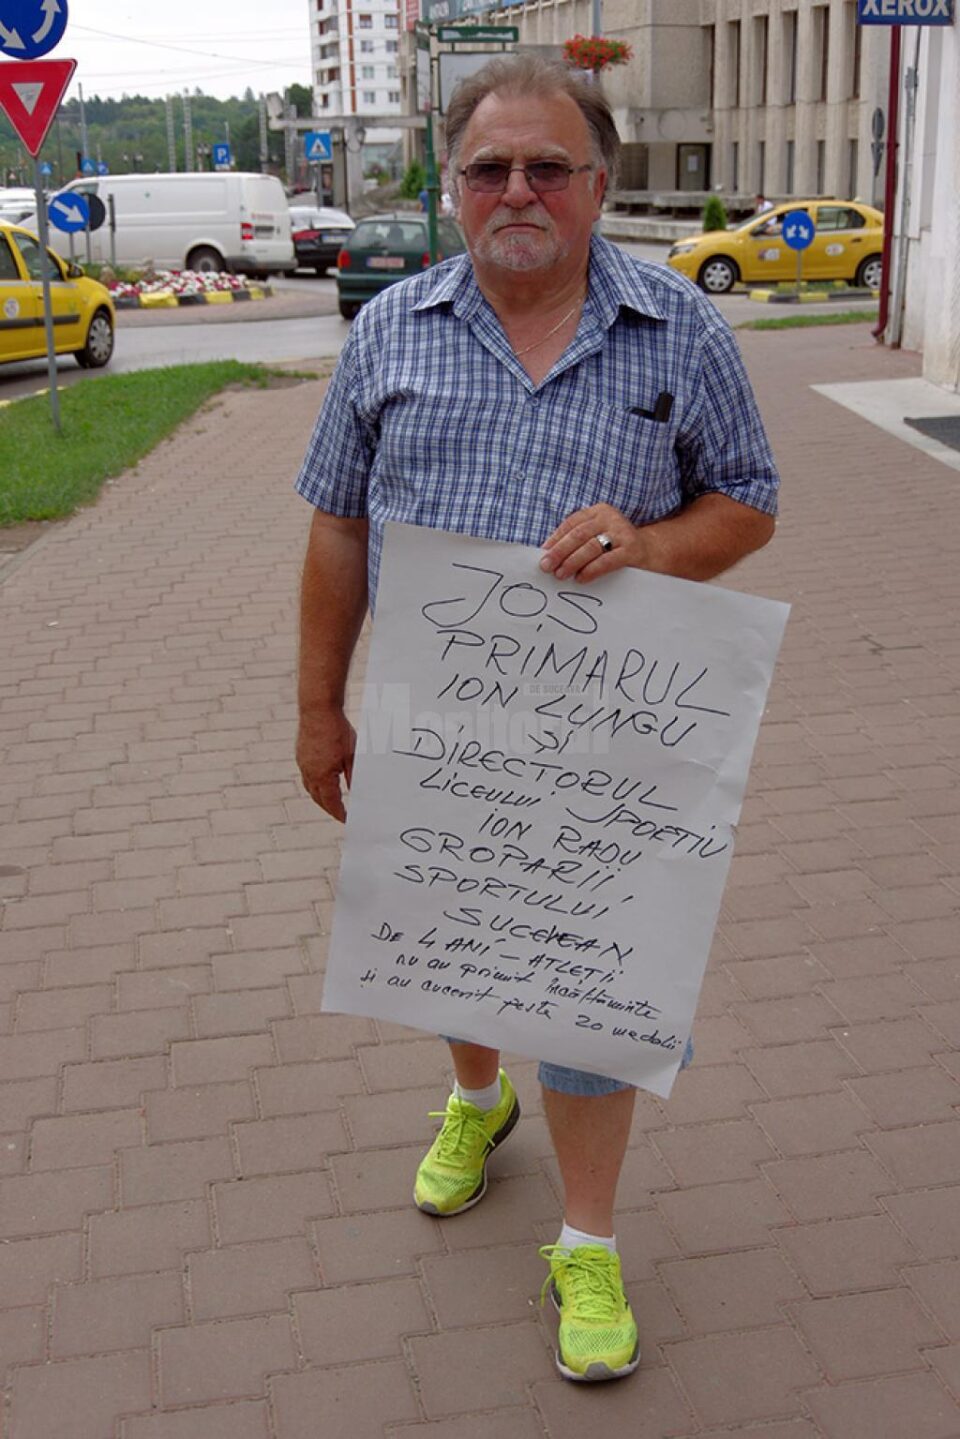 XEROX
P
JOS
PRIMARUL
ION LUNGU
ȘI
DIRECTORUL
LICEULUI SPORTIV
ION RADU
GROPARII
SPORTULUI
SUCEVEAN
DE 4 ANI – ATLEȚII
nu au primit încălțăminte
și au cucerit peste 20 medalii
Monitorul
DE SUCEAVA